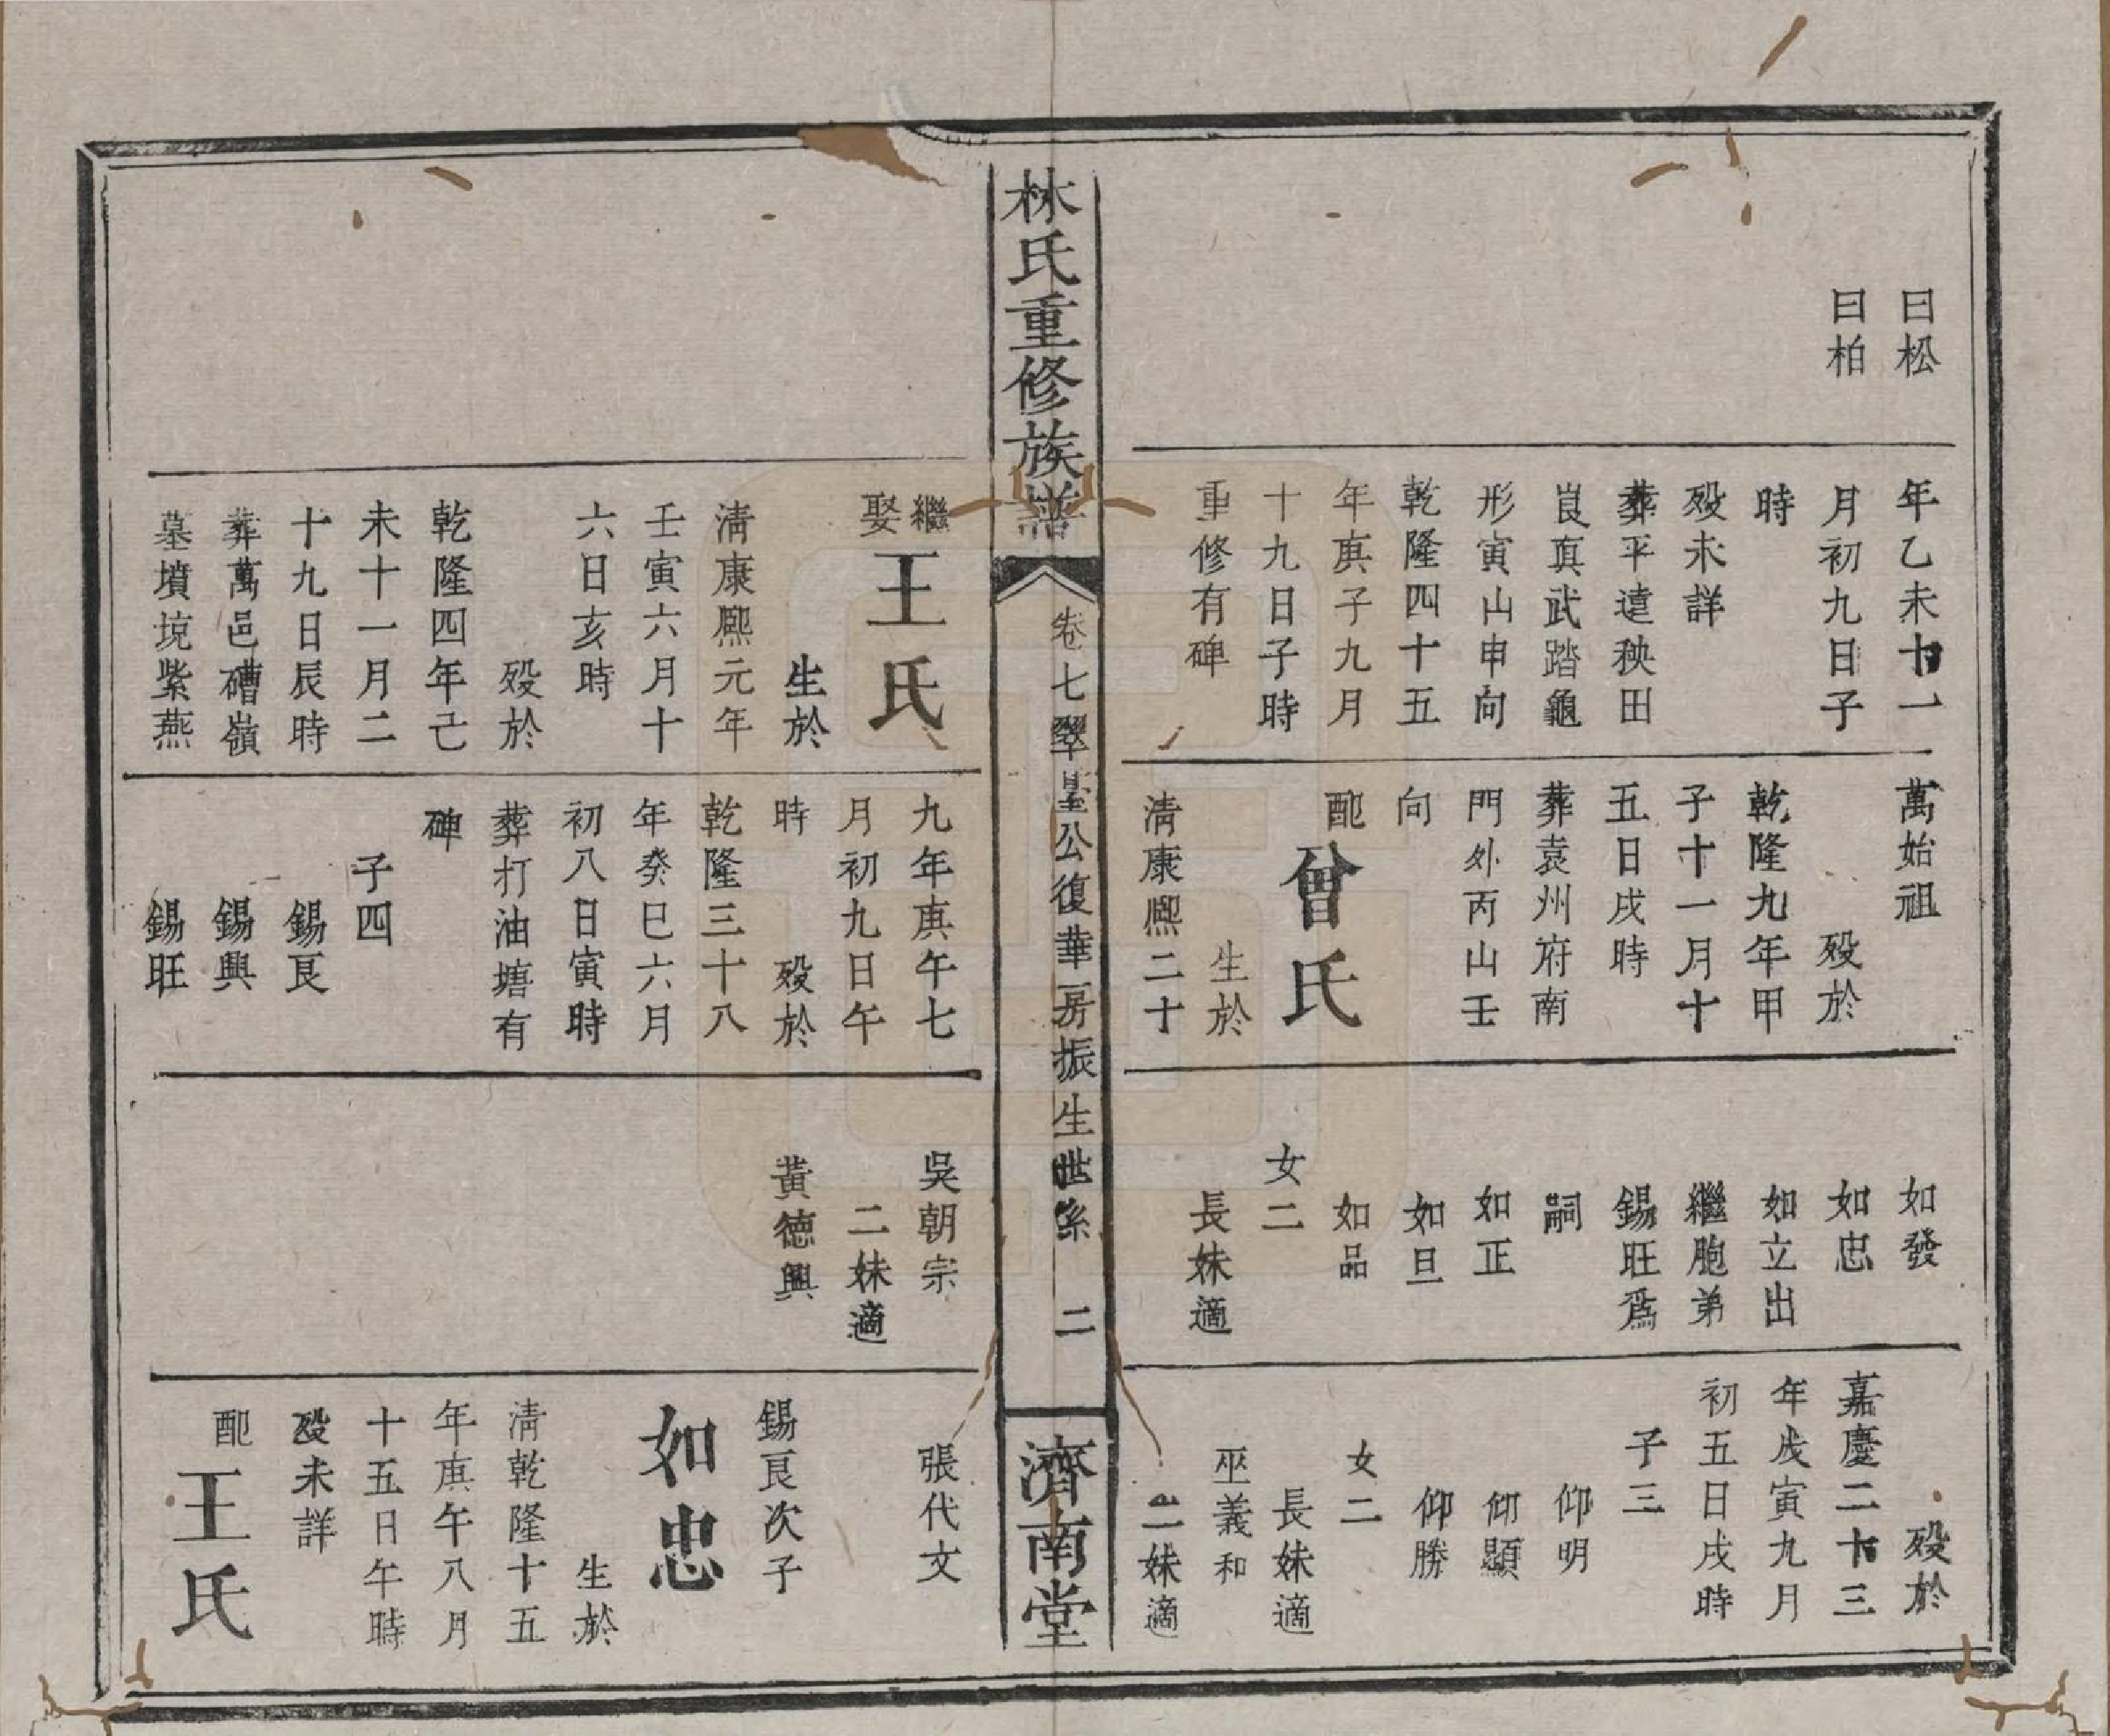 曰松
曰柏
年乙未十一
月初九日子
時
殁未詳
葬平遠秧田
艮真武踏龜
形寅山申向
乾隆四十五
年庚子九月
十九日子時
重修有碑
萬始祖
殁於
乾隆九年甲
子十一月十
五日戌時
葬袁州府南
門外丙山壬
向
配
曾氏
生於
清康熙二十
如發
如忠
如立出
繼胞弟
錫旺為
嗣
如正
如旦
如品
女二
長妹適
殁於
嘉慶二十三
年戊寅九月
初五日戌時
子三
仰明
仰顯
仰勝
女二
長妹適
巫義和
二妹適
林氏重修族譜
卷七翠臺公復華房振生世系 二
濟南堂
繼娶
王氏
生於
清康熙元年
壬寅六月十
六日亥時
殁於
乾隆四年己
未十一月二
十九日辰時
葬萬邑礄嶺
墓墳境紫燕
九年庚午七
月初九日午
時 殁於
乾隆三十八
年癸巳六月
初八日寅時
葬打油塘有
碑
子四
錫艮
錫興
錫旺
吳朝宗
二妹適
黃德興
張代文
錫艮次子
如忠
生於
清乾隆十五
年庚午八月
十五日午時
殁未詳
配
王氏